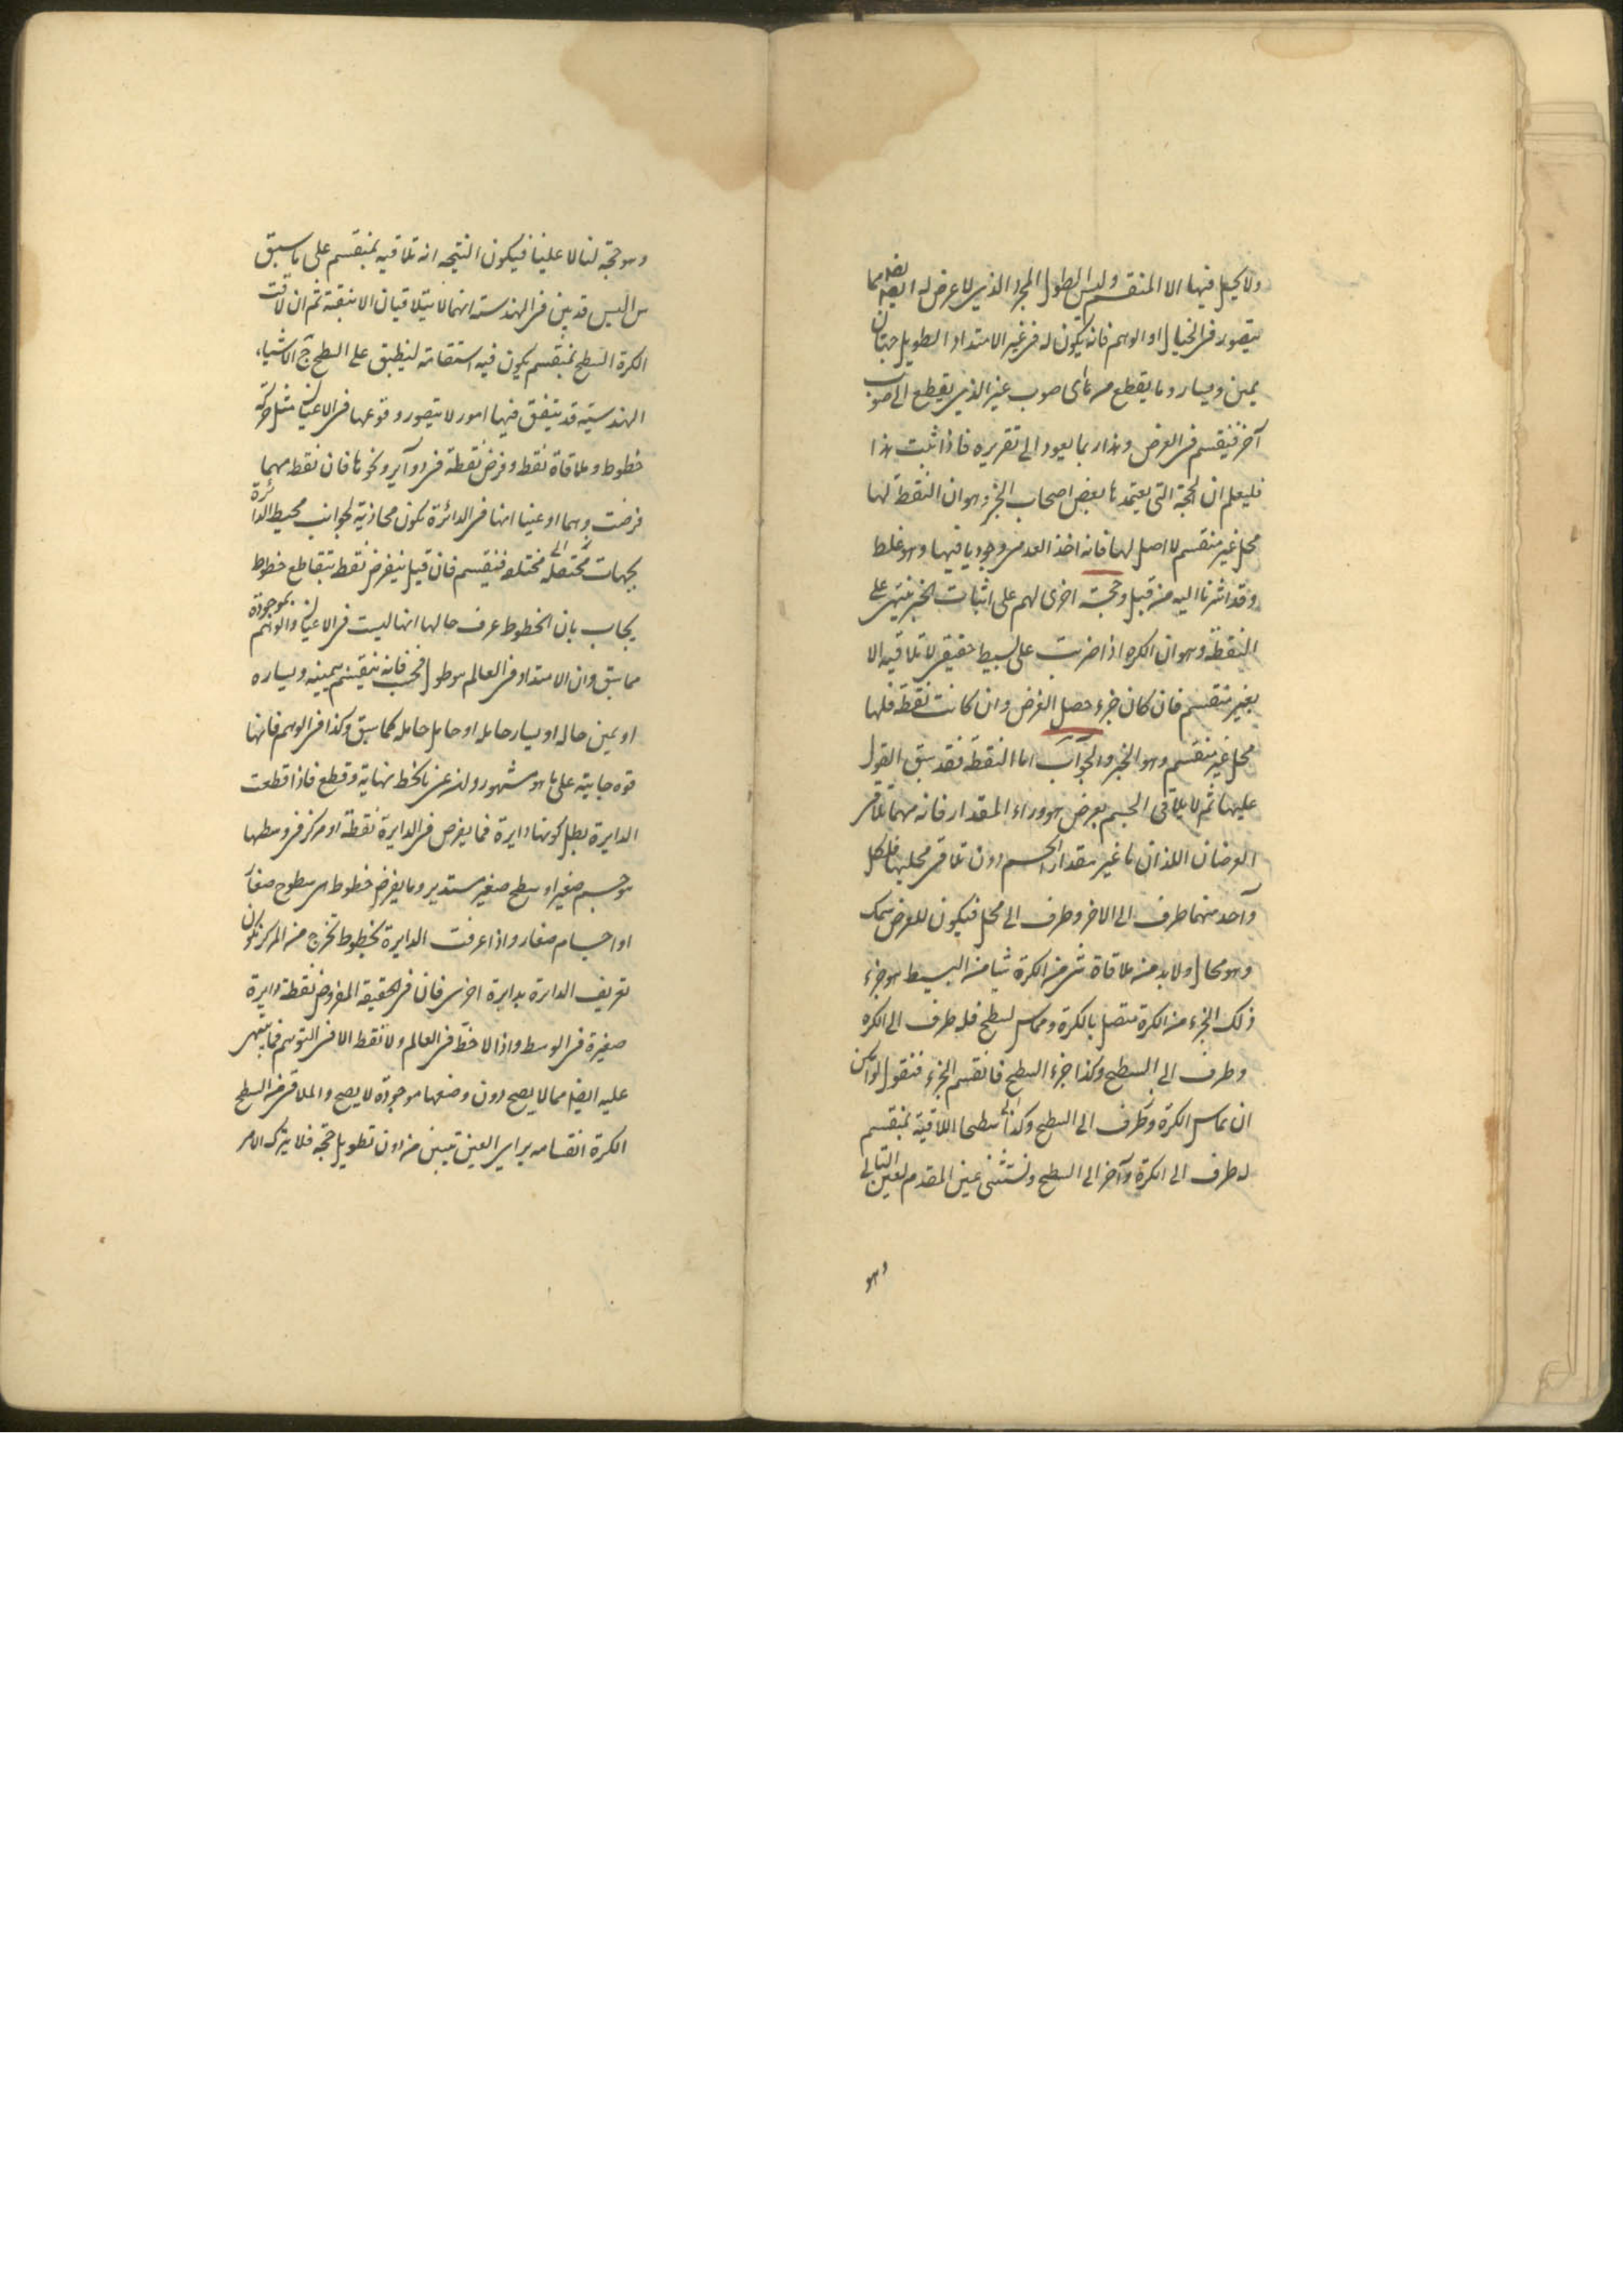 ولا يحل فيها الا المنقسم وليس الطول المجرد الذي لا عرض له ايضا مما
يتصور في الخيال او الوهم فانه يكون له في غير الامتداد الطويل جهتان
يمين ويسار وما يقطع من صوب غير الذي يقطع الى صوب
آخر فينقسم في العرض وهذا ربما يعود الى تقريره فاذا ثبت هذا
فليعلم ان الحجة التي يعتمدها بعض اصحاب الجزء وهو ان النقطة لها
محل غير منقسم لا اصل لها فانه اخذ العدمي وجوديا فيها وهو غلط
وقد اشرنا اليه من قبل وحجة اخرى لهم على اثبات الجزء يبتنى على
النقطة وهو ان الكره اذا ضربت على بسيط حقيقي لا تلاقيه الا
بغير منقسم فان كان جزء حصل الغرض وان كانت نقطة فلها
محل غير منقسم وهو الجزء والجواب اما النقطة فقد سبق القول
عليها ثم لا يلاقى الجسم بعرض هو وراء المقدار فانه مهما تلاقى
العرضان اللذان ما غير مقدار الجسم دون تلاقى محليها فلكل
وآحد منهما طرف الى الاخر وطرف الى محل فيكون للعرض سمك
وهو محال ولا بد من ملاقاة شى من الكرة شيا من البسيط هو جزء
ذلك الجزء من الكرة متصل بالكرة ومماس لسطح فله طرف الى الكره
وطرف الى السطح وكذا جزء السطح فانقسم الجزء فنقول لو امكن
ان يماس الكرة وطرف الى السطح وكذا سطحا اللاقية بمنقسم
له طرف الى الكرة وآخر الى السطح ونستثنى عين المقدم لعين التالى
وهو
وهو حجة لنا لا علينا فيكون النتيجه انه تلاقيه بمنقسم على ما سبق
س اليس قد بين في الهندسة انهما لا يتلاقيان الا بنقطة ثم ان لاقت
الكرة السطح بمنقسم يكون فيه استقامة لينطبق على السطح ج الاشياء
الهندسيّه قد يتفق فيها امور لا يتصور وقوعها في الاعيان مثل حركة
خطوط وملاقاة نقط وفرض نقطة في دوآير ونحوها فان نقط مهما
فرضت وهما او عينا انها في الدائرة يكون محاذية لجوانب محيط الدائرة
بجهات مختلفه فينقسم فان قيل ينفرض نقط بتقاطع خطوط
يجاب بان الخطوط عرف حالها انها ليست في الاعيان والوهم بموجودة
مما سبق وان الامتداد في العالم هو طول فحسب فانه ينقسم بيمينه ويساره
او يمين حاله او يسار حامله او حامل حامله كما سبق وكذا في الوهم فانها
قوه جرمانية على ما هو مشهور ولئن عنى بالخط نهاية وقطع فاذا قطعت
الدايرة بطل كونها دايرة فما يفرض في الدايرة نقطة او مركز في وسطها
هو جسم صغير او سطح صغير مستدير وما يفرض خطوط هى سطوح صغار
او اجسام صغار واذا عرفت الدايرة بخطوط تخرج من المركز يكون
تعريف الدائرة بدايرة اخرى فان في الحقيقه المفروض نقطة دايرة
صغيرة في الوسط واذ لا خطّ في العالم ولا نقط الا في التوهم فما يبتنى
عليه ايضا مما لا يصح دون وضعها موجودة لا يصح والملاقى من السطح
الكرة انقسامه براى العين تبين من دون تطويل حجة فلا يترك الامر